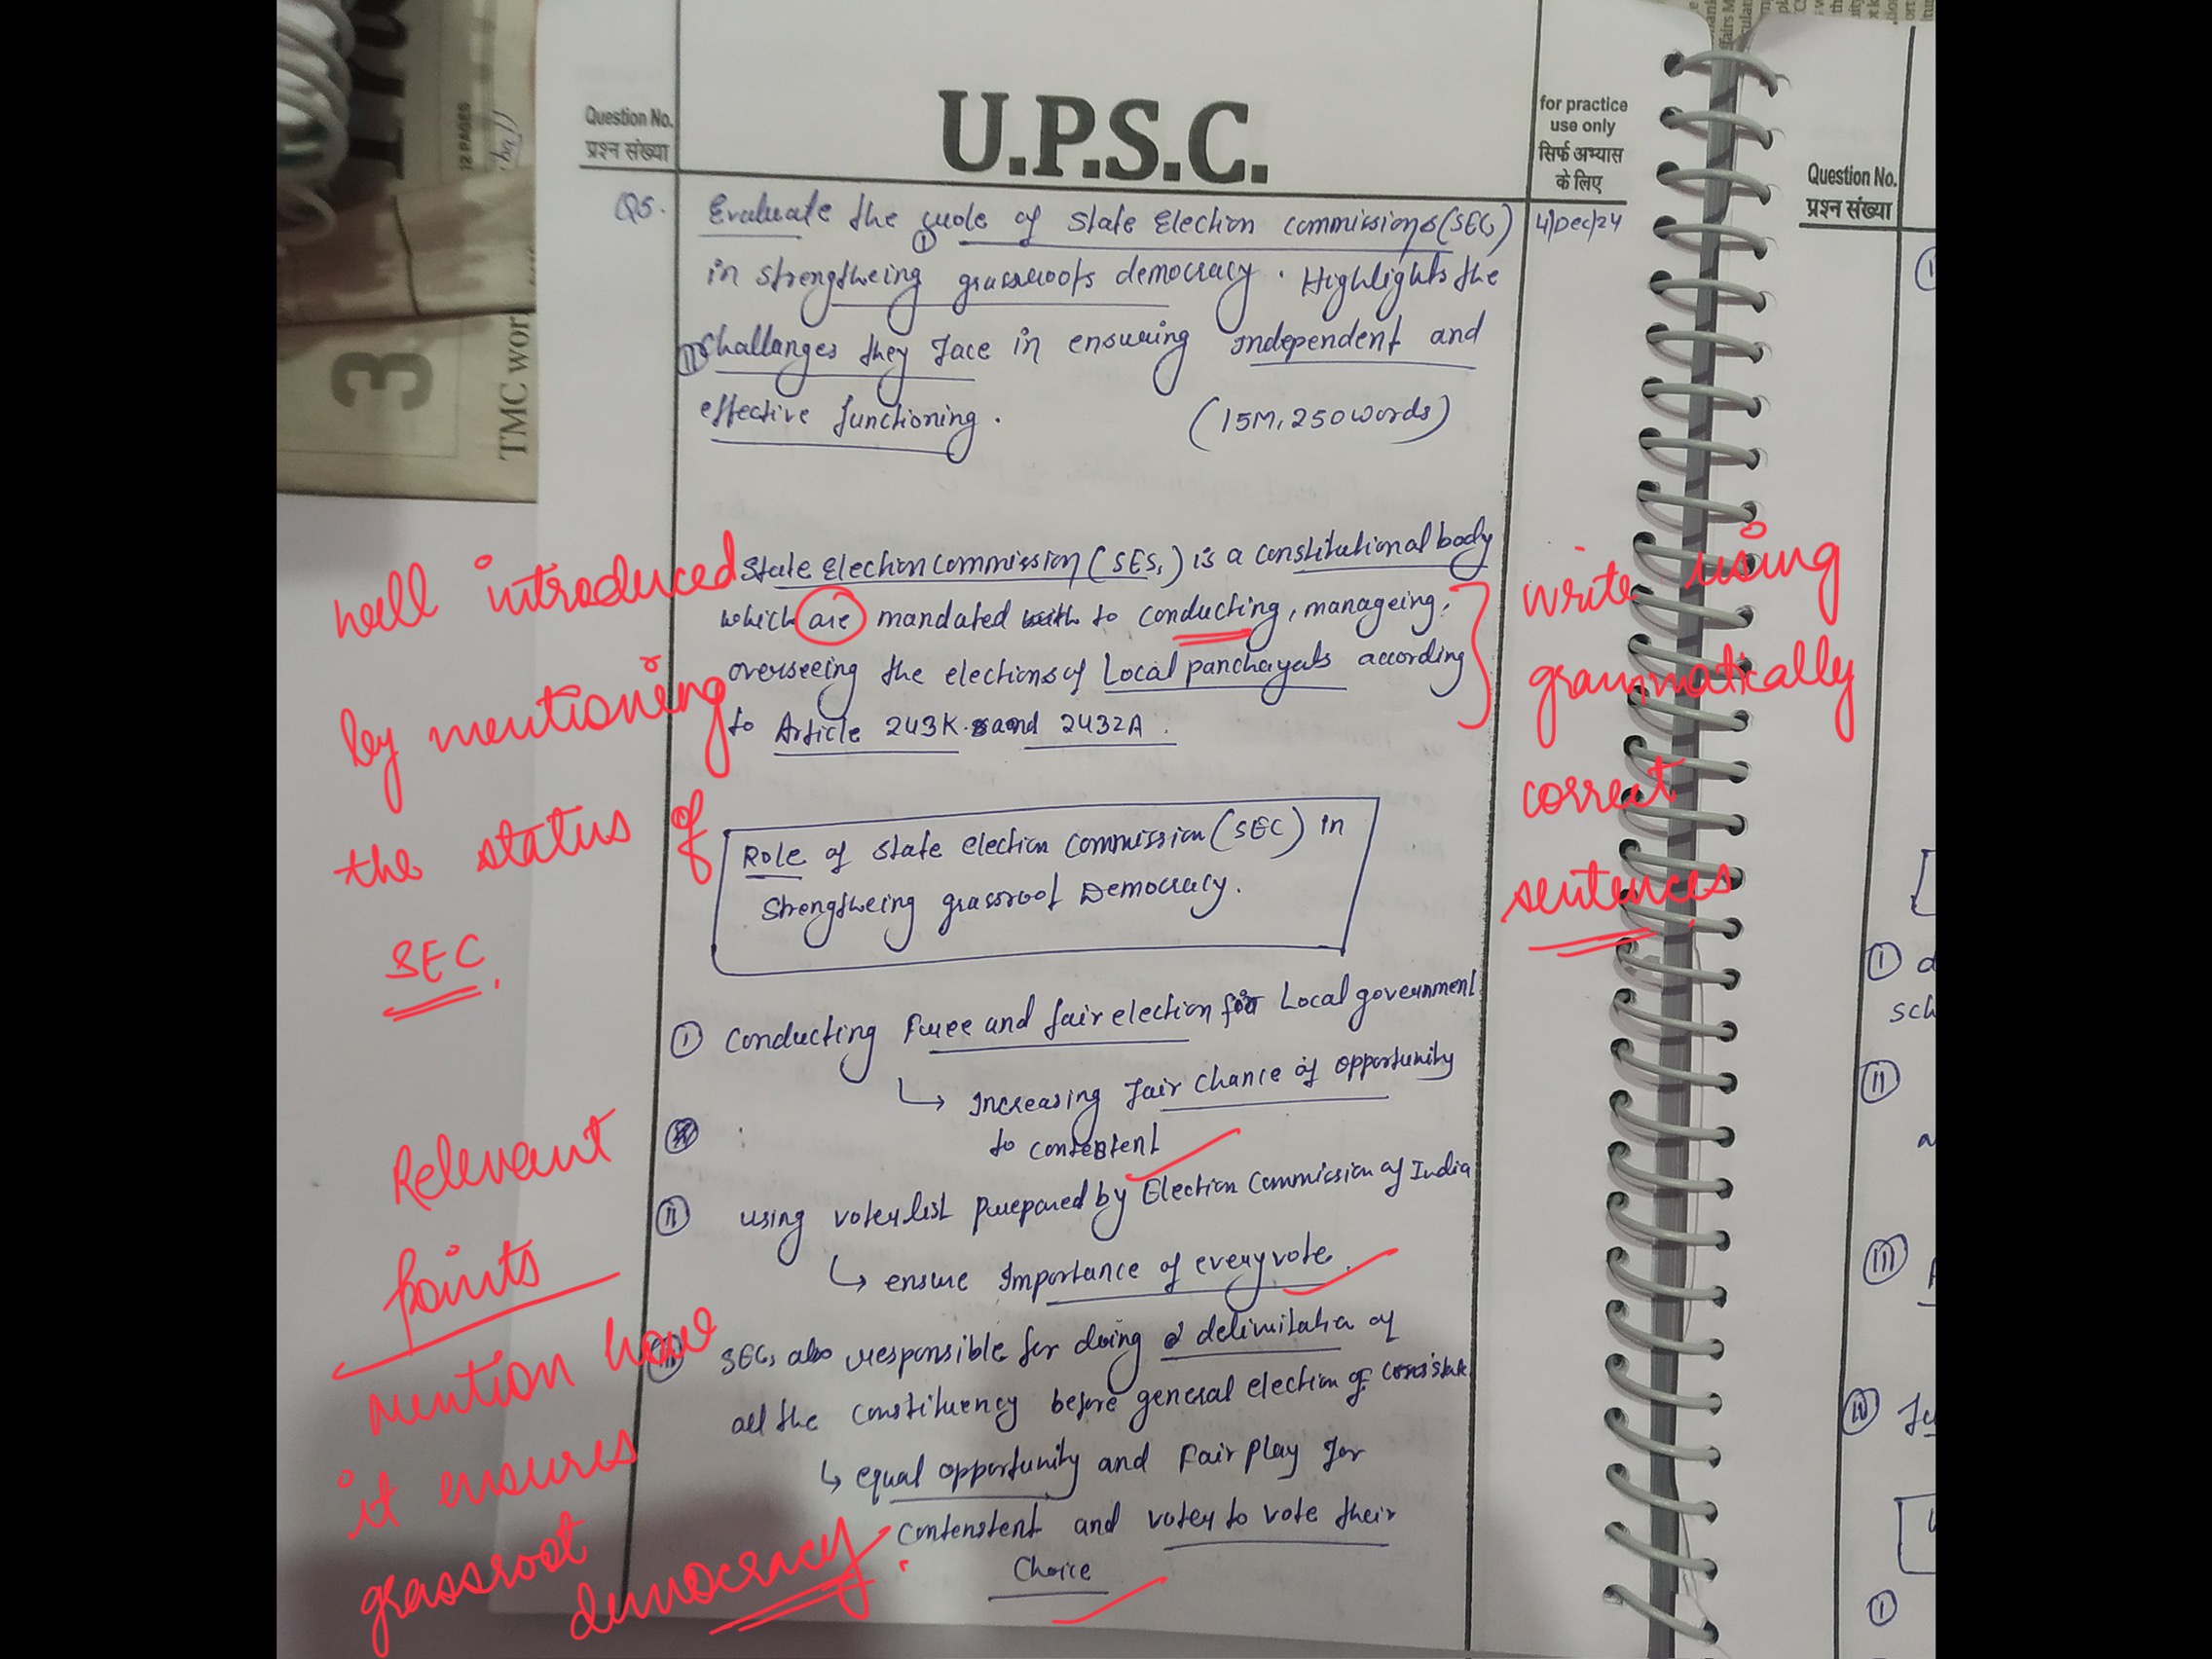 12 PAGES
3
TMC wor
U.P.S.C.
Question No.
प्रश्न संख्या
for practice
use only
सिर्फ अभ्यास
के लिए
Question No.
प्रश्न संख्या
Q5. Evaluate the role of State Election Commissions (SECs) 4/Dec/24
in strengtheing grassroots democracy. Highlights the
challanges they face in ensuring independent and
effective functioning. (15M, 250 words)
State Election Commission (SESs) is a constitutional body
which are mandated to conducting, manageing,
overseeing the elections of Local panchayats according
to Article 243K and 243ZA.
well introduced
by mentioning
the status of
SEC.
write using
grammatically
correct
sentences
Role of State Election Commission (SEC) in
Strengtheing grassroot Democracy.
I Conducting Free and fair election for Local government
↳ Increasing fair chance of opportunity
to contestent
II using voter list prepared by Election Commission of India
↳ ensure Importance of every vote.
III SECs also responsible for doing delimitation of
all the constituency before general election of
↳ equal opportunity and Fair play for
contenstent and voter to vote their
Choice
Relevant
points
mention how
it ensures
grassroot
democracy.
I
I d
sch
II
a
III
IV
I